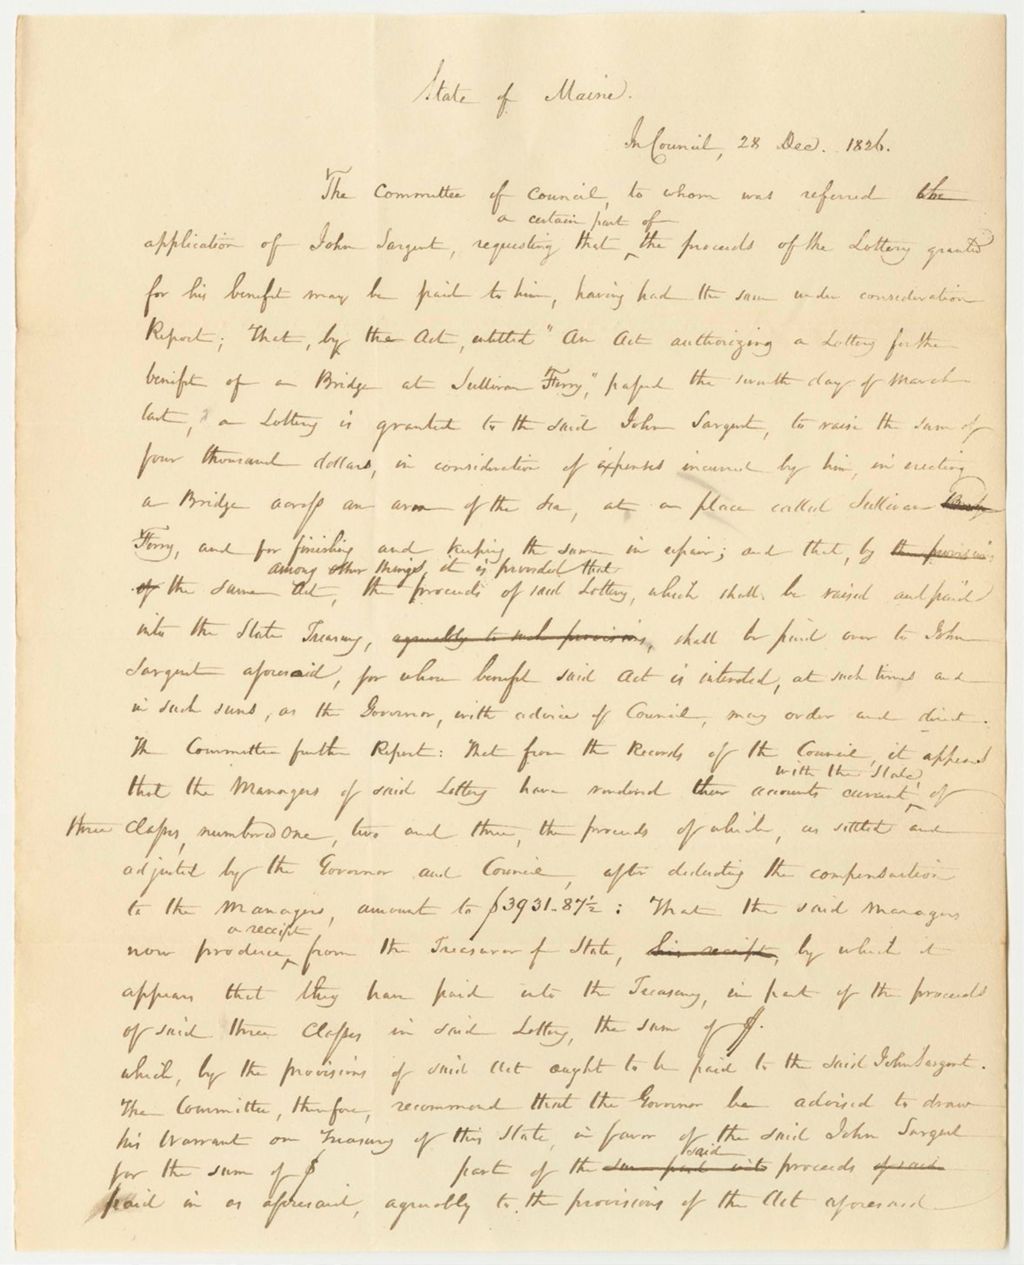 State of Maine.
In Council, 28 Dec. 1826.
The Committee of Council, to whom was referred the
a certain part of
application of John Sargent, requesting that the proceeds of the Lottery granted
for his benefit may be paid to him, having had the same under consideration
Report; That, by the Act, entitled "An Act authorizing a Lottery for the
benefit of a Bridge at Sullivan Ferry," passed the seventh day of March
last, a Lottery is granted to the said John Sargent, to raise the sum of
four thousand dollars, in consideration of expenses incurred by him, in erecting
a Bridge across an arm of the Sea, at a place called Sullivan
Ferry, and for finishing and keeping the same in repair; and that, by the provisions
among other things, it is provided that
of the same Act, the proceeds of said Lottery, which shall be raised and paid
into the State Treasury, agreeably to such provisions, shall be paid over to John
Sargent aforesaid, for whose benefit said Act is intended, at such times and
in such sums, as the Governor, with advice of Council, may order and direct.
The Committee further Report: That from the Records of the Council, it appears
with the State
that the Managers of said Lottery have rendered their accounts current of
three Classes, numbered one, two and three, the proceeds of which, as settled and
adjusted by the Governor and Council, after deducting the compensation
to the Managers, amount to $3931.87½: That the said Managers
a receipt
now produce from the Treasurer of State, his receipt, by which it
appears that they have paid into the Treasury, in part of the proceeds
of said three Classes in said Lottery, the sum of $.
which, by the provisions of said Act ought to be paid to the said John Sargent.
The Committee, therefore, recommend that the Governor be advised to draw
his Warrant on Treasury of this State, in favor of the said John Sargent
said
for the sum of $ part of the sum paid into proceeds of said
paid in as aforesaid, agreeably to the provisions of the Act aforesaid